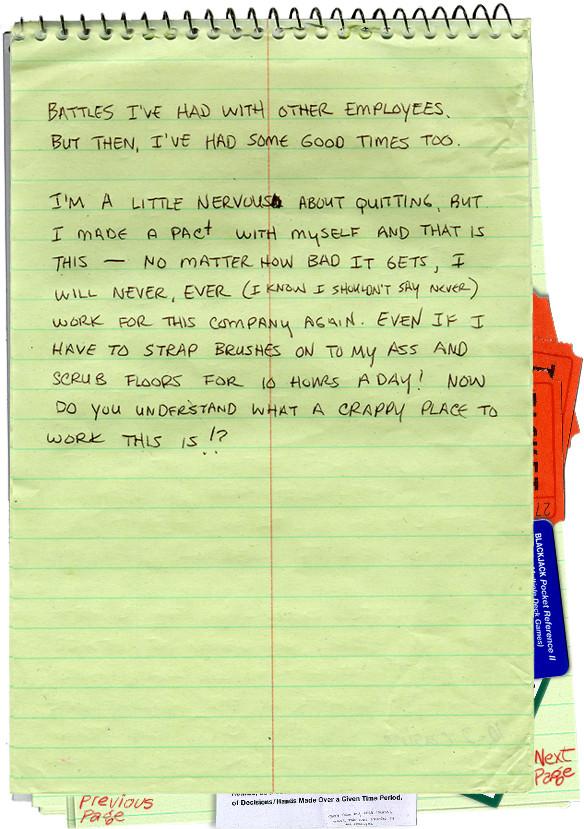 BATTLES I'VE HAD WITH OTHER EMPLOYEES.
BUT THEN, I'VE HAD SOME GOOD TIMES TOO.
I'M A LITTLE NERVOUS ABOUT QUITTING, BUT
I MADE A PACt WITH MYSELF AND THAT IS
THIS — NO MATTER HOW BAD IT GETS, I
WILL NEVER, EVER (I KNOW I SHOULDN'T SAY NEVER)
WORK FOR THIS COMPANY AGAIN. EVEN IF I
HAVE TO STRAP BRUSHES ON TO MY ASS AND
SCRUB FLOORS FOR 10 HOURS A DAY! NOW
DO YOU UNDERSTAND WHAT A CRAPPY PLACE TO
WORK THIS IS!?
TICKET
27
BLACKJACK Pocket Reference II
Multiple Deck Games)
Next
Page
Previous
Page
of Decisions/Hands Made Over a Given Time Period.